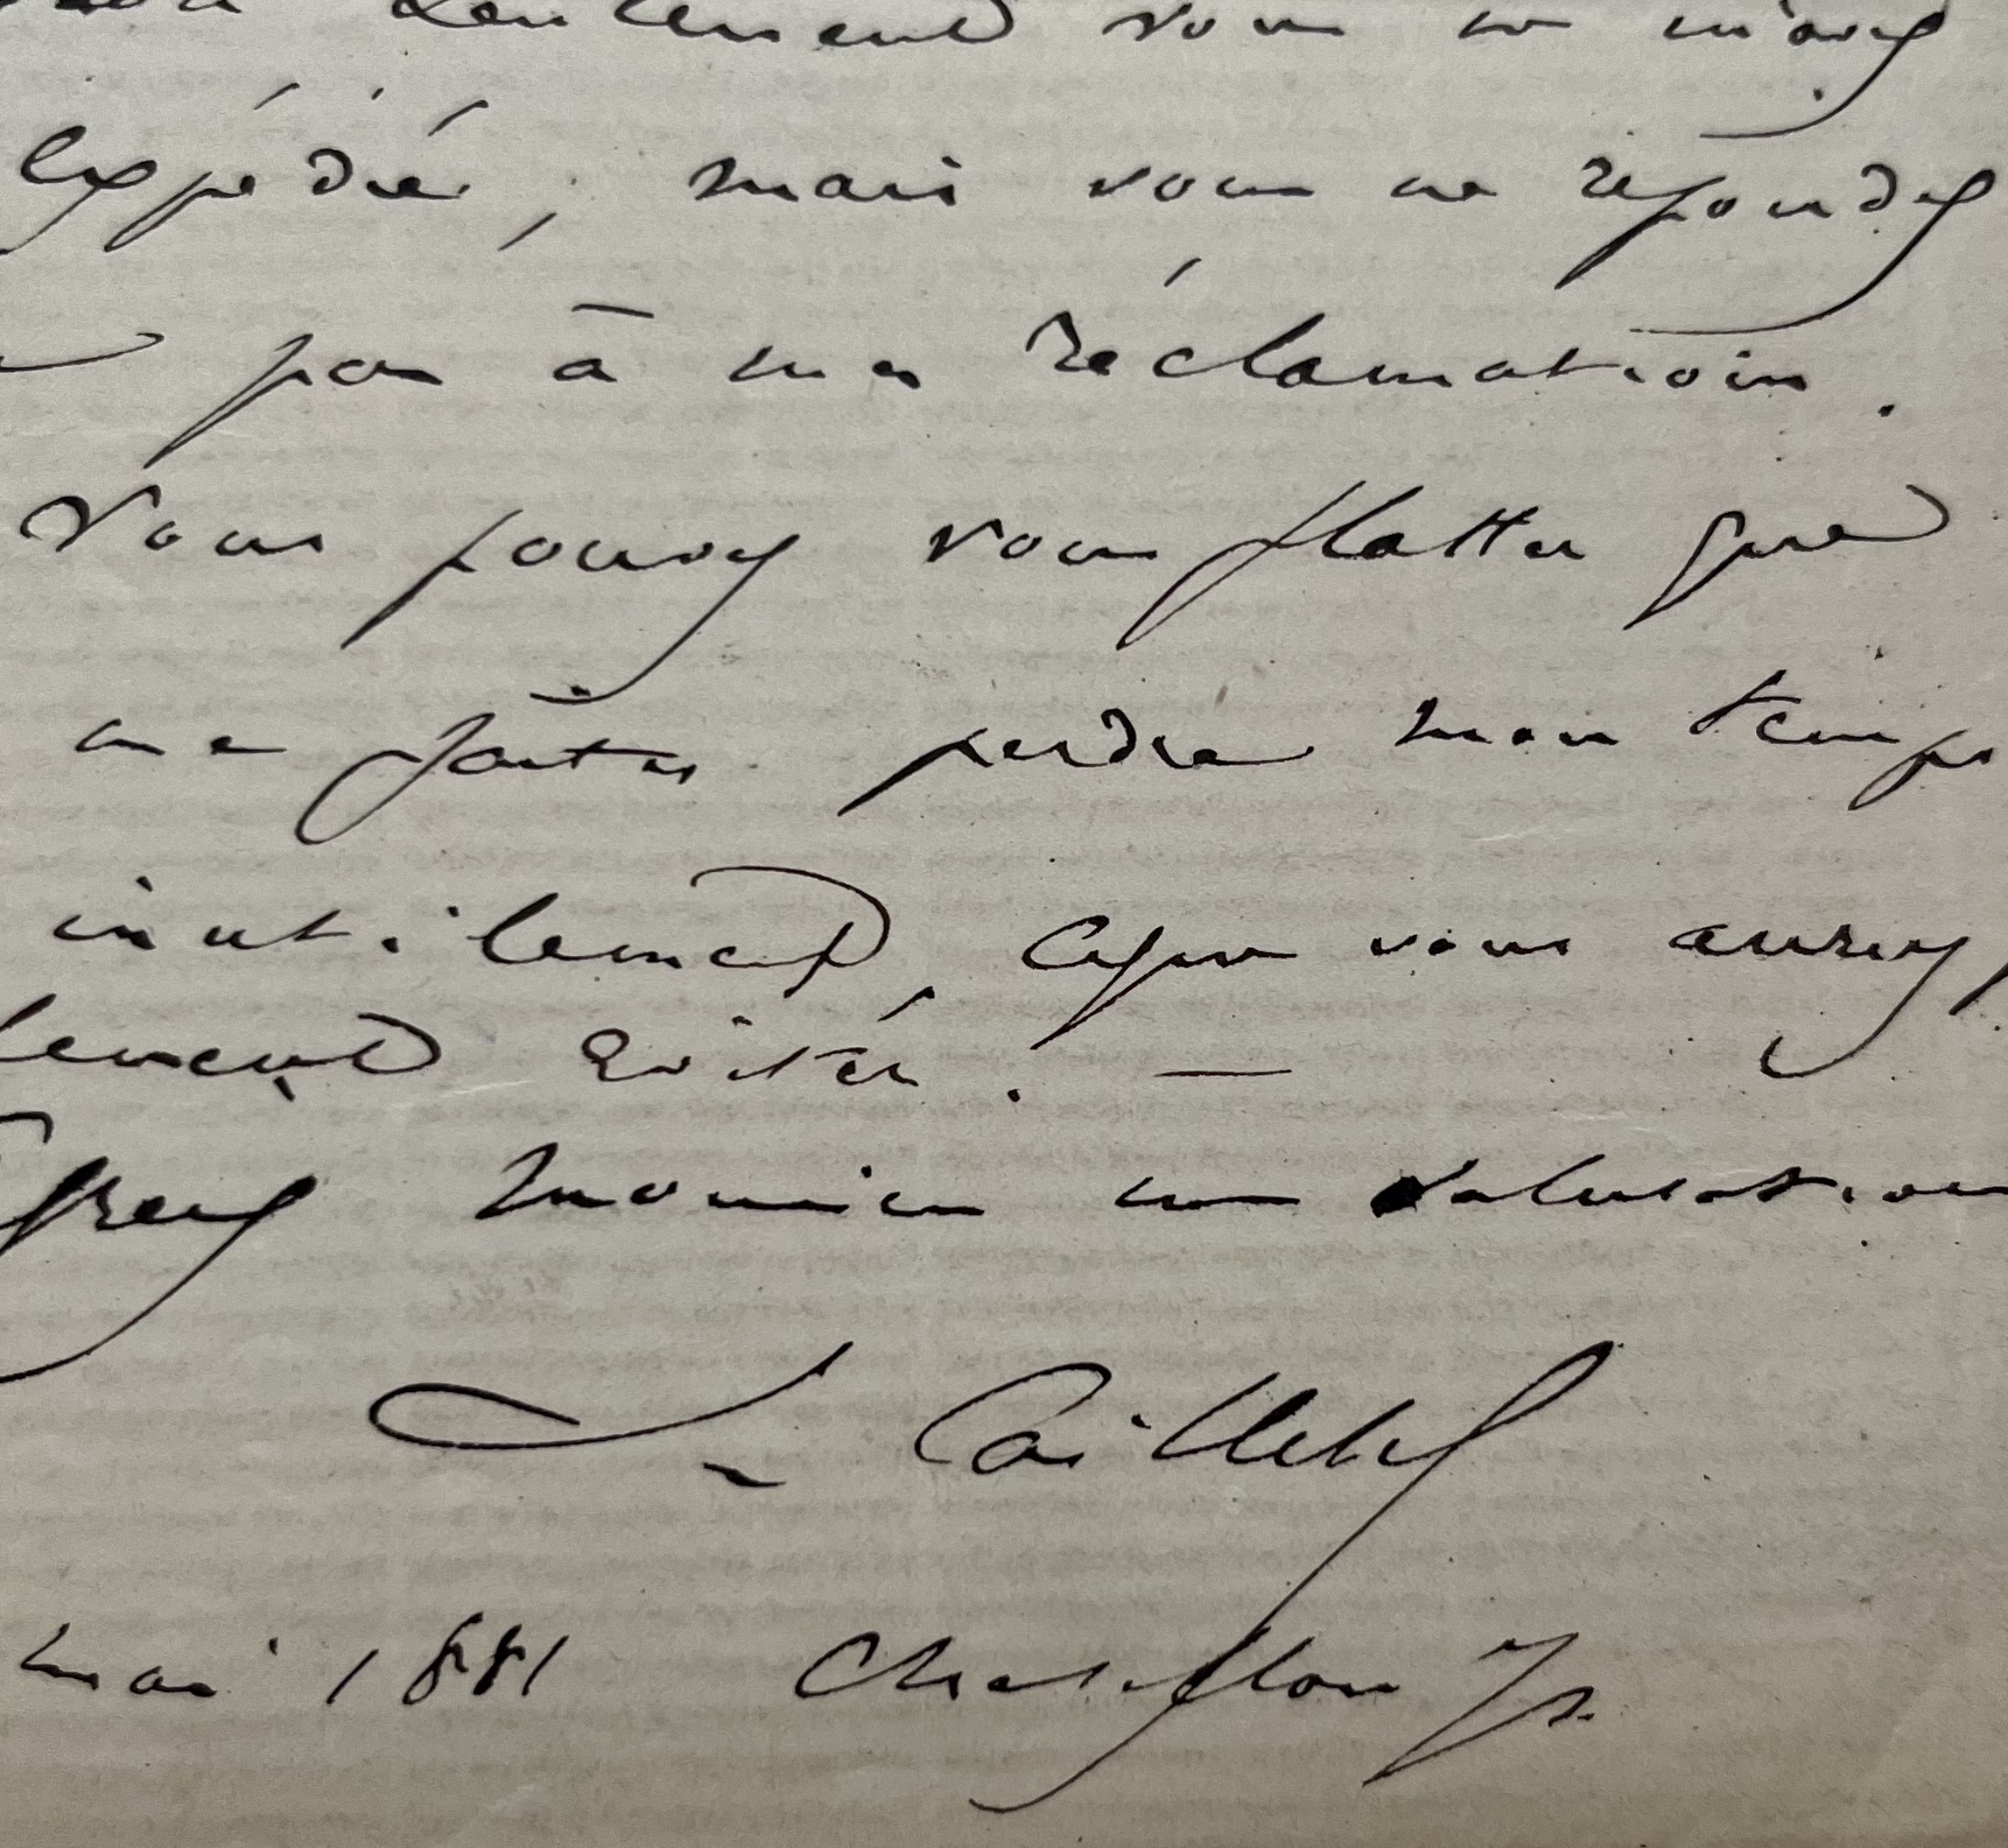 seulement vous ne m'avez
expédié, mais vous ne répondez
pas à ma réclamation.
Vous pouvez vous flatter que
me faites perdre mon temps
inutilement, ce que vous auriez
lement éviter. —
moncieu mes salutations
L Cailletet
mai 1881 Chatillon